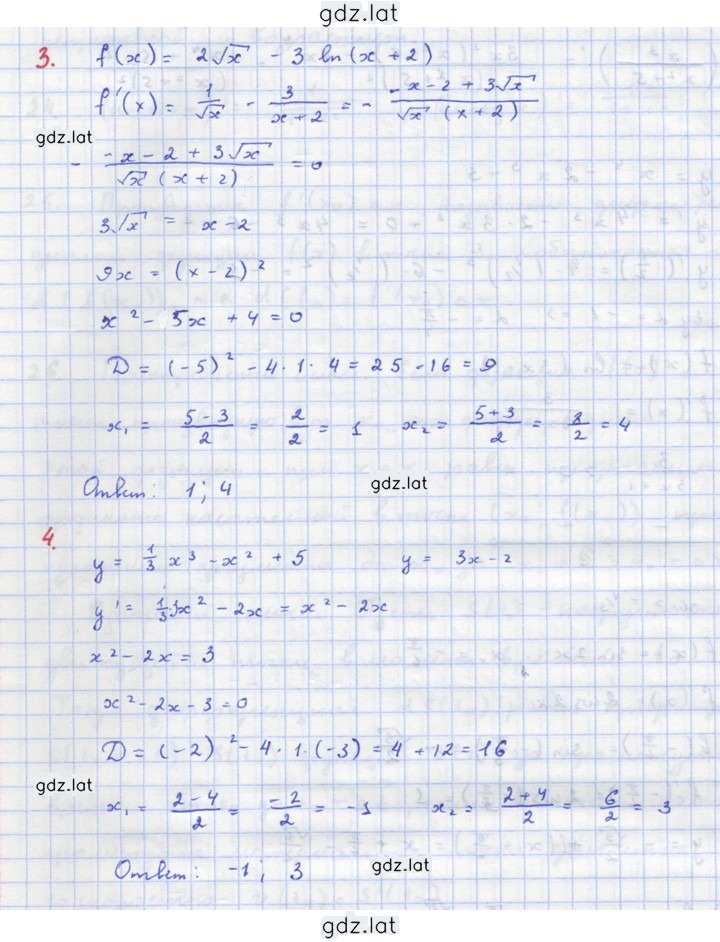 gdz.lat
3. f(x) = 2√x - 3 ln(x+2)
f'(x) = 1/√x - 3/(x+2) = - (-x-2+3√x)/(√x (x+2))
gdz.lat
- (-x-2+3√x)/(√x (x+2)) = 0
3√x = -x-2
9x = (x-2)²
x² - 5x + 4 = 0
D = (-5)² - 4·1·4 = 25 - 16 = 9
x₁ = (5-3)/2 = 2/2 = 1 x₂ = (5+3)/2 = 8/2 = 4
Ответ: 1; 4
gdz.lat
4.
y = 1/3 x³ - x² + 5 y = 3x - 2
y' = 1/3 3x² - 2x = x² - 2x
x² - 2x = 3
x² - 2x - 3 = 0
D = (-2)² - 4·1·(-3) = 4 + 12 = 16
gdz.lat
x₁ = (2-4)/2 = -2/2 = -1 x₂ = (2+4)/2 = 6/2 = 3
Ответ: -1; 3
gdz.lat
gdz.lat